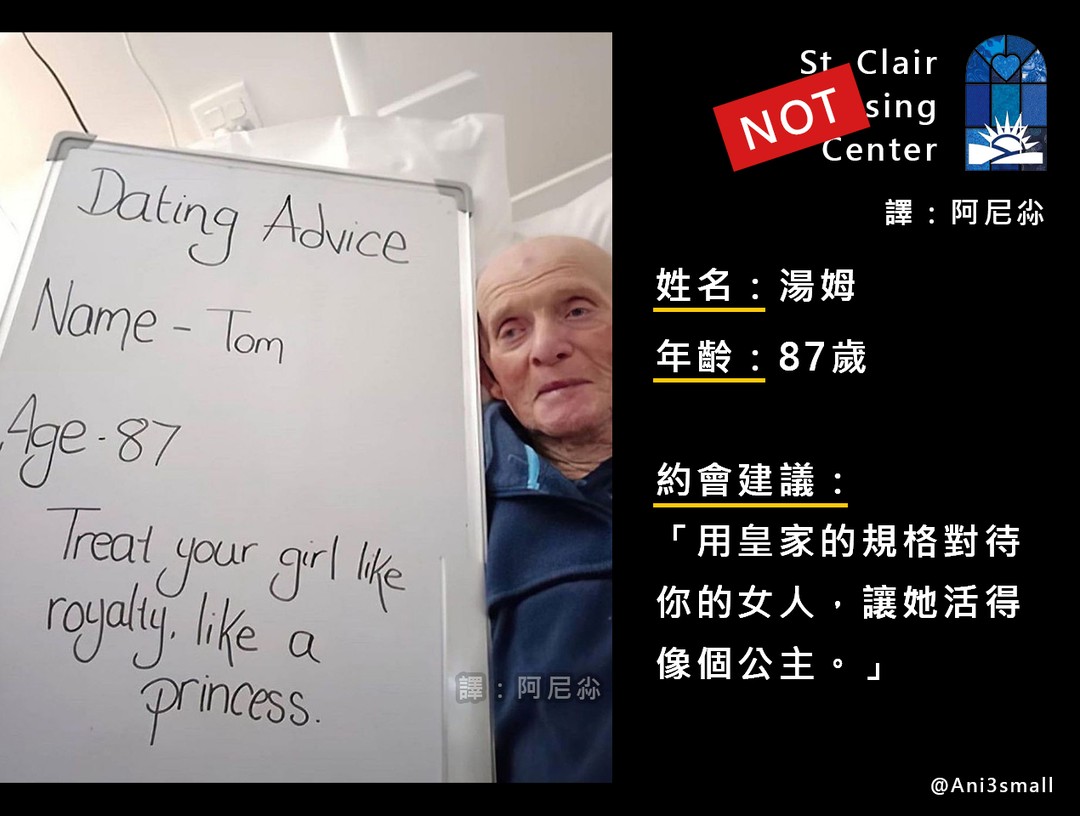 Dating Advice
Name - Tom
Age - 87
Treat your girl like
royalty, like a
princess.
譯：阿尼尛
St. Clair
NOT
sing
Center
譯：阿尼尛
姓名：湯姆
年齡：87歲
約會建議：
「用皇家的規格對待
你的女人，讓她活得
像個公主。」
@Ani3small